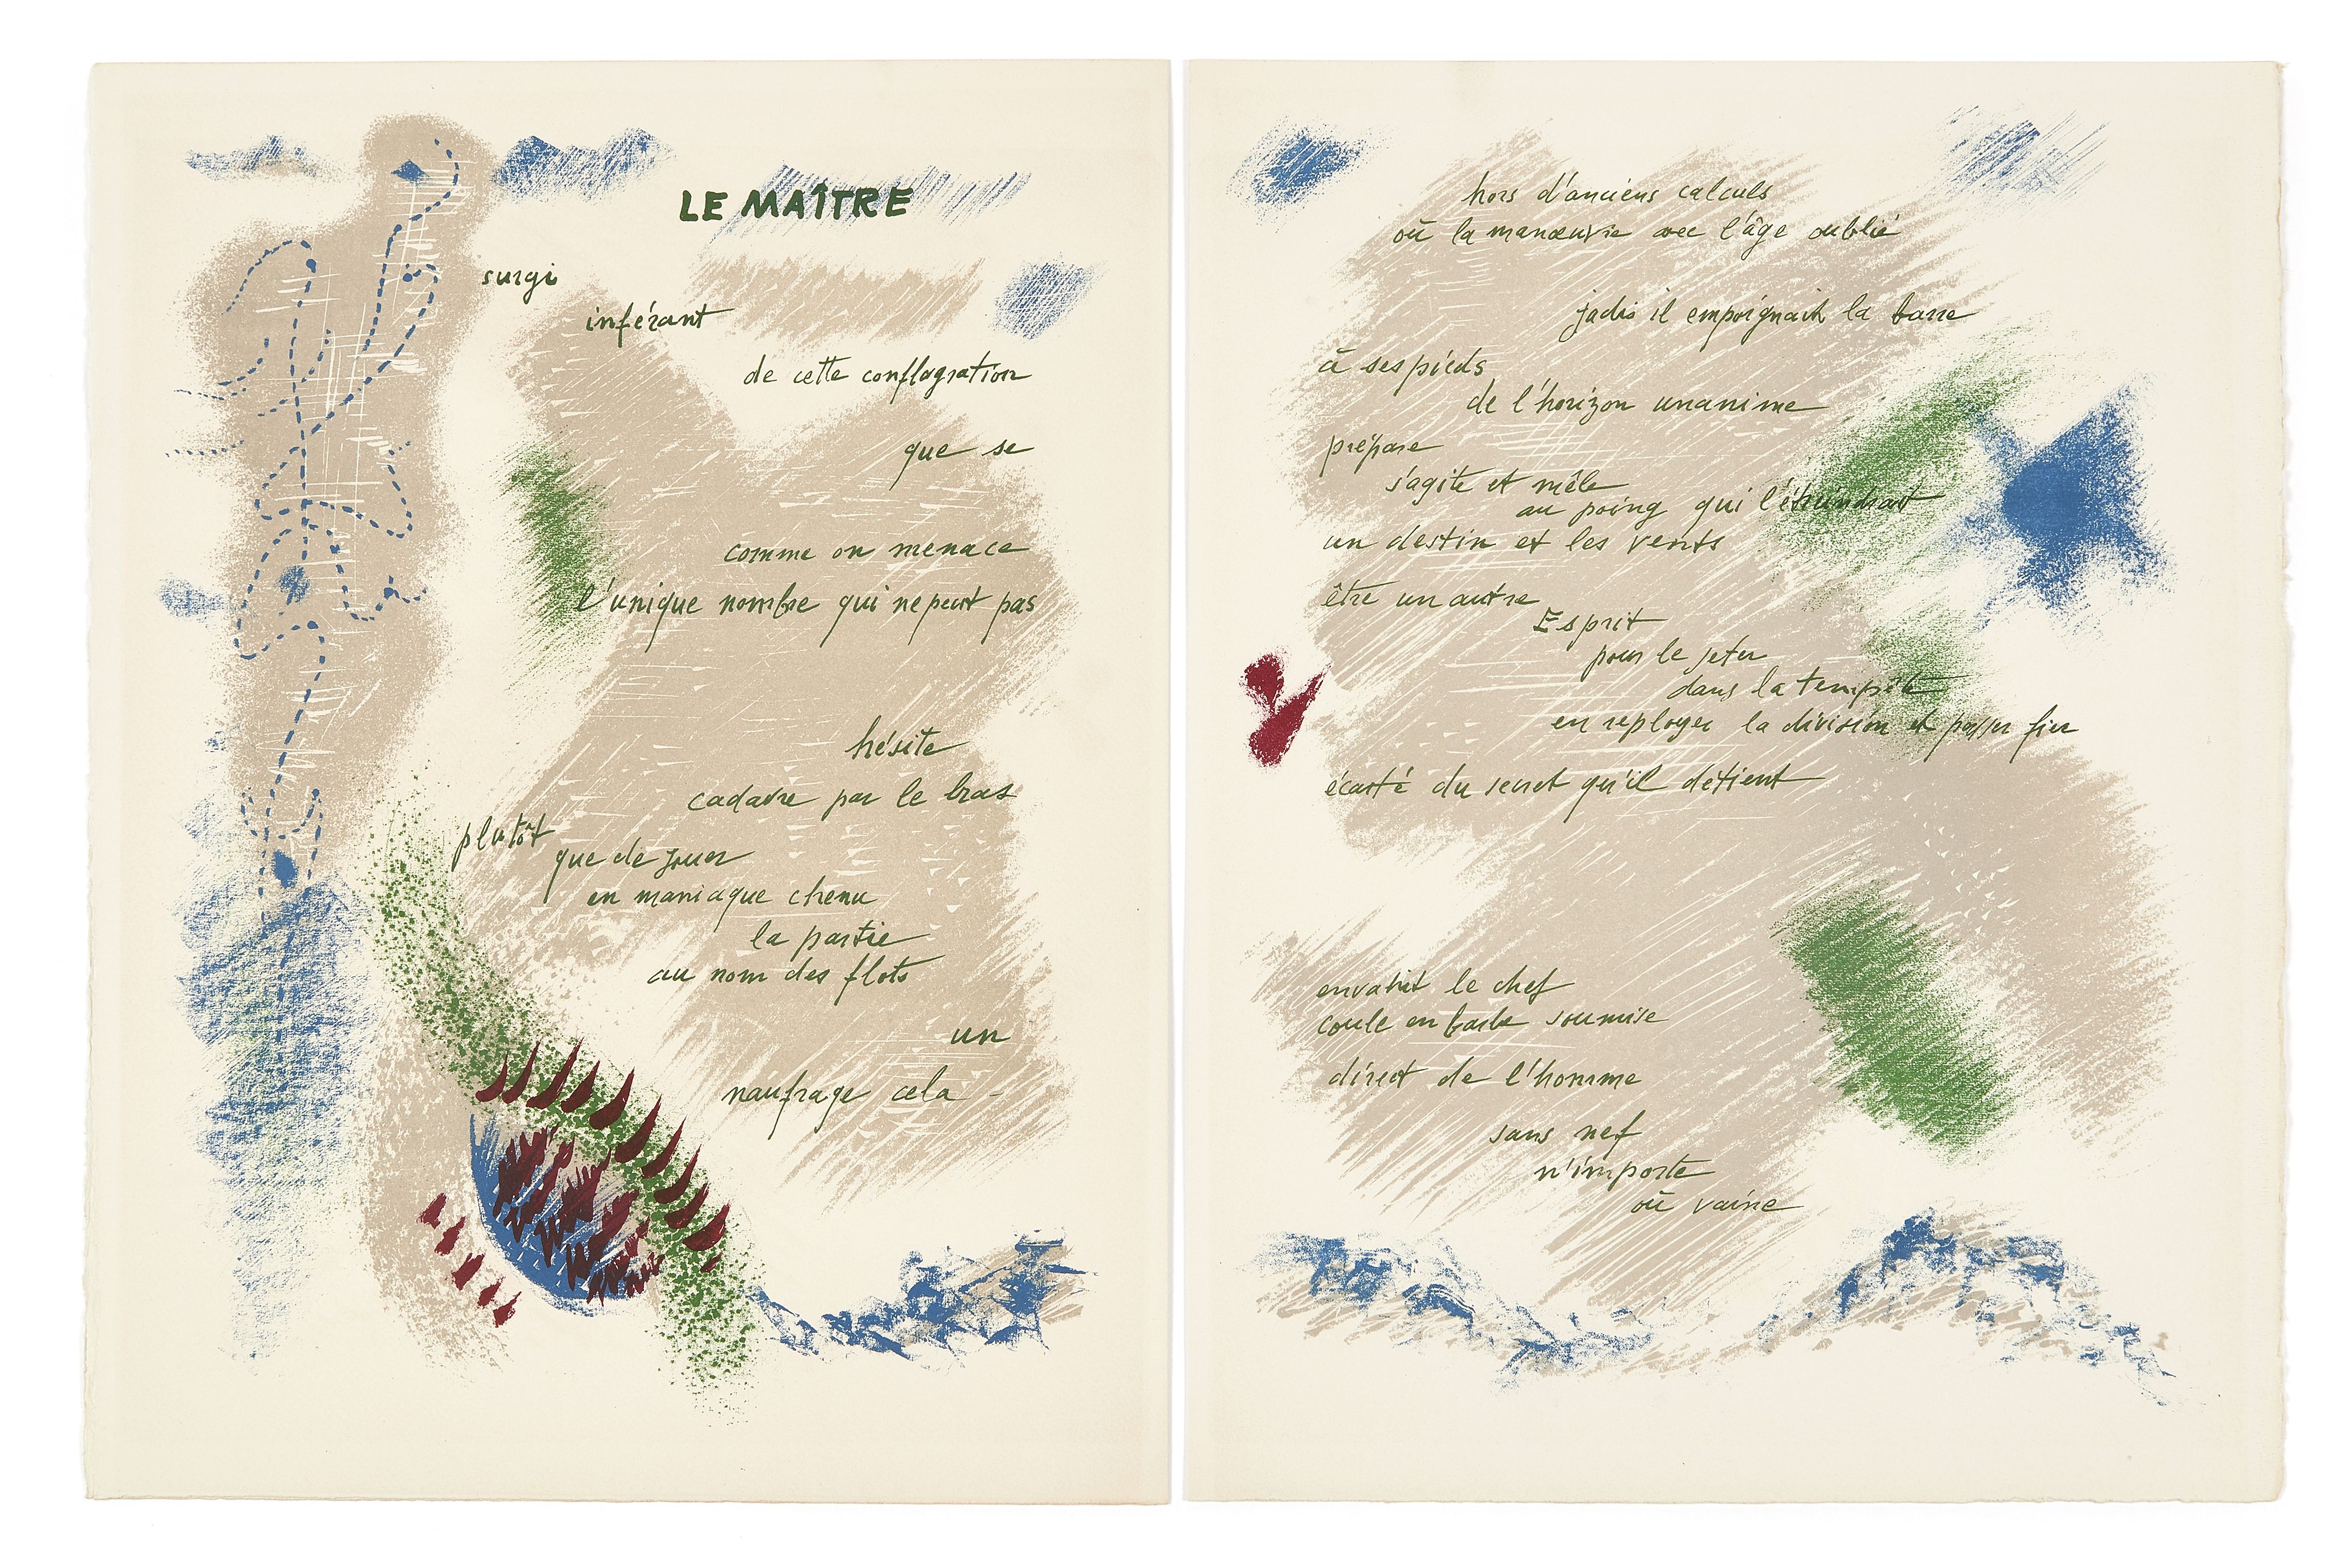 LE MAÎTRE
surgi
inférant
de cette conflagration
que se
comme on menace
l'unique nombre qui ne peut pas
hésite
cadavre par le bras
plutôt
que de jouer
en maniaque chenu
la partie
au nom des flots
un
naufrage cela -
hors d'anciens calculs
où la manœuvre avec l'âge oublié
jadis il empoignait la barre
à ses pieds
de l'horizon unanime
prépare
s'agite et mêle
au poing qui l'étreindrait
un destin et les vents
être un autre
Esprit
pour le jeter
dans la tempête
en reployer la division et passer fier
écarté du secret qu'il détient
envahit le chef
coule en barbe soumise
direct de l'homme
sans nef
n'importe
où vaine